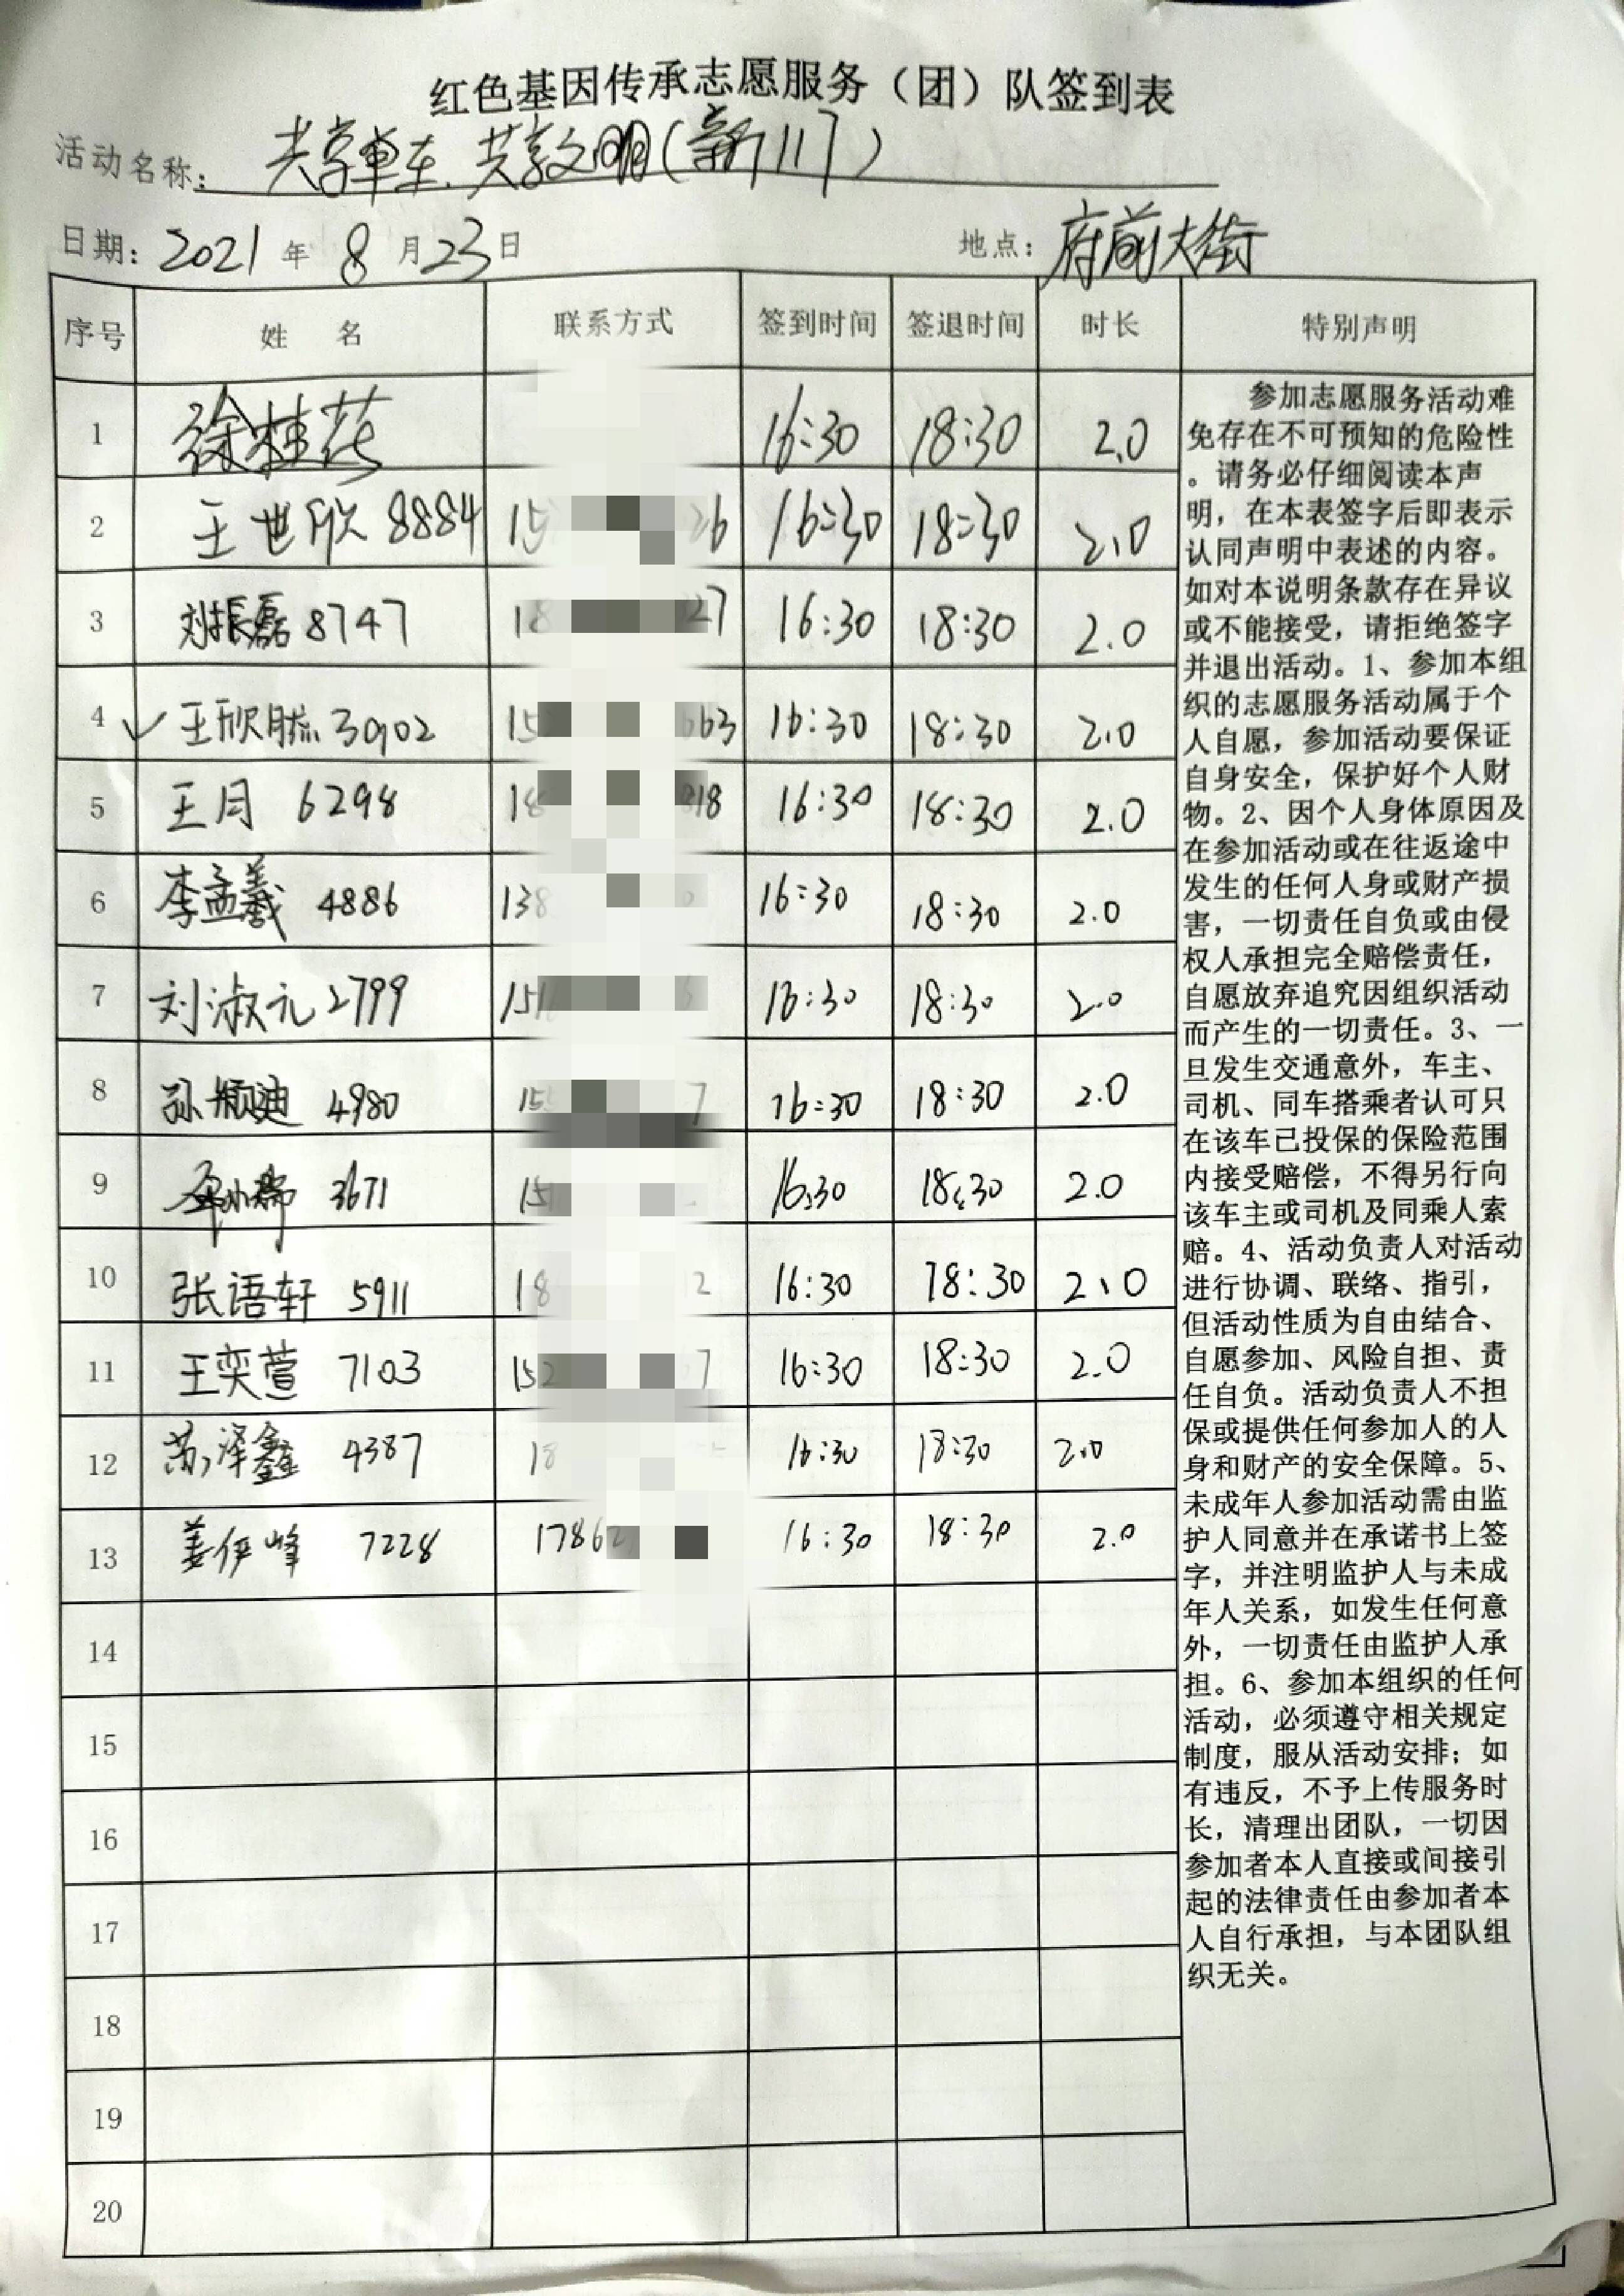 红色基因传承志愿服务（团）队签到表
活动名称：共享单车、共享文明(新117)
日期：2021年8月23日 地点：府前大街
序号 姓 名 联系方式 签到时间 签退时间 时长 特别声明
1 徐桂花 16:30 18:30 2.0
2 王世欣 8884 15 26 16:30 18:30 2.0
3 刘振磊 8747 18 27 16:30 18:30 2.0
4 王欣 30902 15 663 16:30 18:30 2.0
5 王月 6298 18 818 16:30 18:30 2.0
6 李孟羲 4886 138 16:30 18:30 2.0
7 刘淑元 2799 151 16:30 18:30 2.0
8 孙颖迪 4980 15 7 16:30 18:30 2.0
9 3671 15 16:30 18:30 2.0
10 张语轩 5911 18 2 16:30 18:30 2.0
11 王奕萱 7103 152 7 16:30 18:30 2.0
12 苏泽鑫 4387 18 16:30 18:30 2.0
13 姜伊峰 7228 17862 16:30 18:30 2.0
14
15
16
17
18
19
20
参加志愿服务活动难
免存在不可预知的危险性
。请务必仔细阅读本声
明，在本表签字后即表示
认同声明中表述的内容。
如对本说明条款存在异议
或不能接受，请拒绝签字
并退出活动。1、参加本组
织的志愿服务活动属于个
人自愿，参加活动要保证
自身安全，保护好个人财
物。2、因个人身体原因及
在参加活动或在往返途中
发生的任何人身或财产损
害，一切责任自负或由侵
权人承担完全赔偿责任，
自愿放弃追究因组织活动
而产生的一切责任。3、一
旦发生交通意外，车主、
司机、同车搭乘者认可只
在该车已投保的保险范围
内接受赔偿，不得另行向
该车主或司机及同乘人索
赔。4、活动负责人对活动
进行协调、联络、指引，
但活动性质为自由结合、
自愿参加、风险自担、责
任自负。活动负责人不担
保或提供任何参加人的人
身和财产的安全保障。5、
未成年人参加活动需由监
护人同意并在承诺书上签
字，并注明监护人与未成
年人关系，如发生任何意
外，一切责任由监护人承
担。6、参加本组织的任何
活动，必须遵守相关规定
制度，服从活动安排；如
有违反，不予上传服务时
长，清理出团队，一切因
参加者本人直接或间接引
起的法律责任由参加者本
人自行承担，与本团队组
织无关。